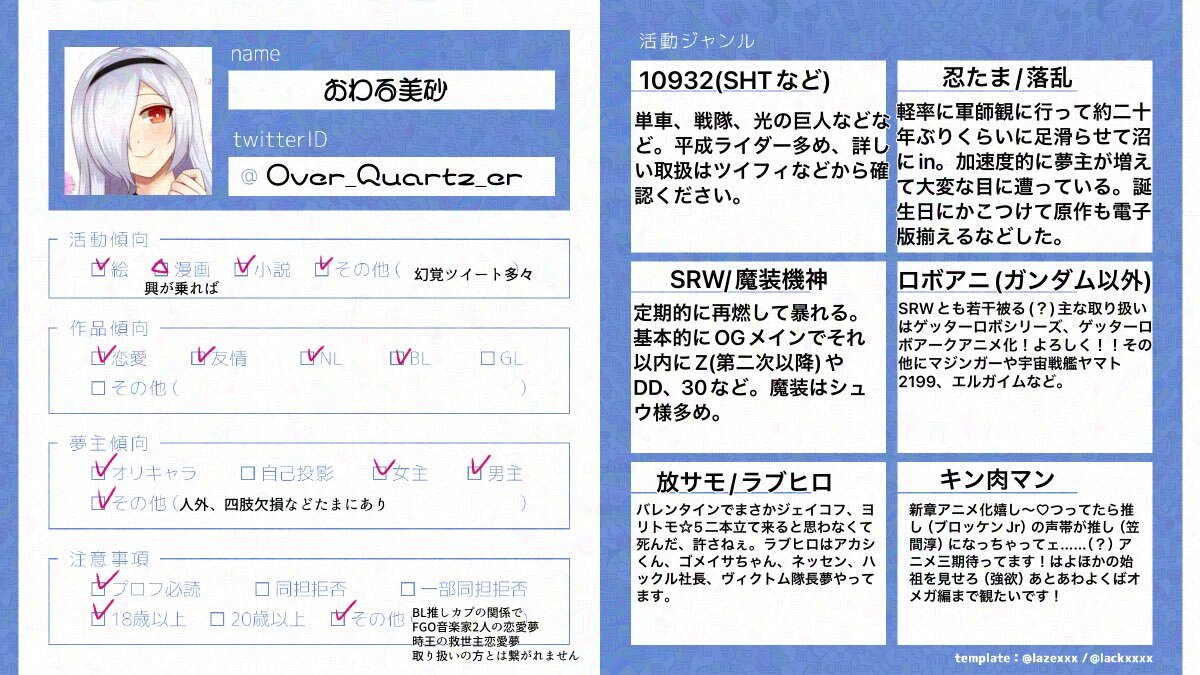 name
おわる美砂
twitterID
@ Over_Quartz_er
活動傾向
絵 漫画 小説 その他( 幻覚ツイート多々
興が乗れば
作品傾向
恋愛 友情 NL BL GL
その他( )
夢主傾向
オリキャラ 自己投影 女主 男主
その他(人外、四肢欠損などたまにあり )
注意事項
プロフ必読 同担拒否 一部同担拒否
18歳以上 20歳以上 その他
BL推しカプの関係で
FGO音楽家2人の恋愛夢
時王の救世主恋愛夢
取り扱いの方とは繋がれません
活動ジャンル
10932(SHTなど)
単車、戦隊、光の巨人などな
ど。平成ライダー多め、詳し
い取扱はツイフィなどから確
認ください。
忍たま/落乱
軽率に軍師観に行って約二十
年ぶりくらいに足滑らせて沼
にin。加速度的に夢主が増え
て大変な目に遭っている。誕
生日にかこつけて原作も電子
版揃えるなどした。
SRW/魔装機神
定期的に再燃して暴れる。
基本的にOGメインでそれ
以内にZ(第二次以降)や
DD、30など。魔装はシュ
ウ様多め。
ロボアニ(ガンダム以外)
SRWとも若干被る(?)主な取り扱い
はゲッターロボシリーズ、ゲッターロ
ボアークアニメ化!よろしく!!その
他にマジンガーや宇宙戦艦ヤマト
2199、エルガイムなど。
放サモ/ラブヒロ
バレンタインでまさかジェイコフ、ヨ
リトモ☆5二本立て来ると思わなくて
死んだ、許さねぇ。ラブヒロはアカシ
くん、ゴメイサちゃん、ネッセン、ハ
ックル社長、ヴィクトム隊長夢やって
ます。
キン肉マン
新章アニメ化嬉し〜♡つってたら推
し(ブロッケンJr)の声帯が推し(笠
間淳)になっちゃってェ……(?)ア
ニメ三期待ってます!はよほかの始
祖を見せろ(強欲)あとあわよくばオ
メガ編まで観たいです!
template：@lazexxx / @lackxxxx